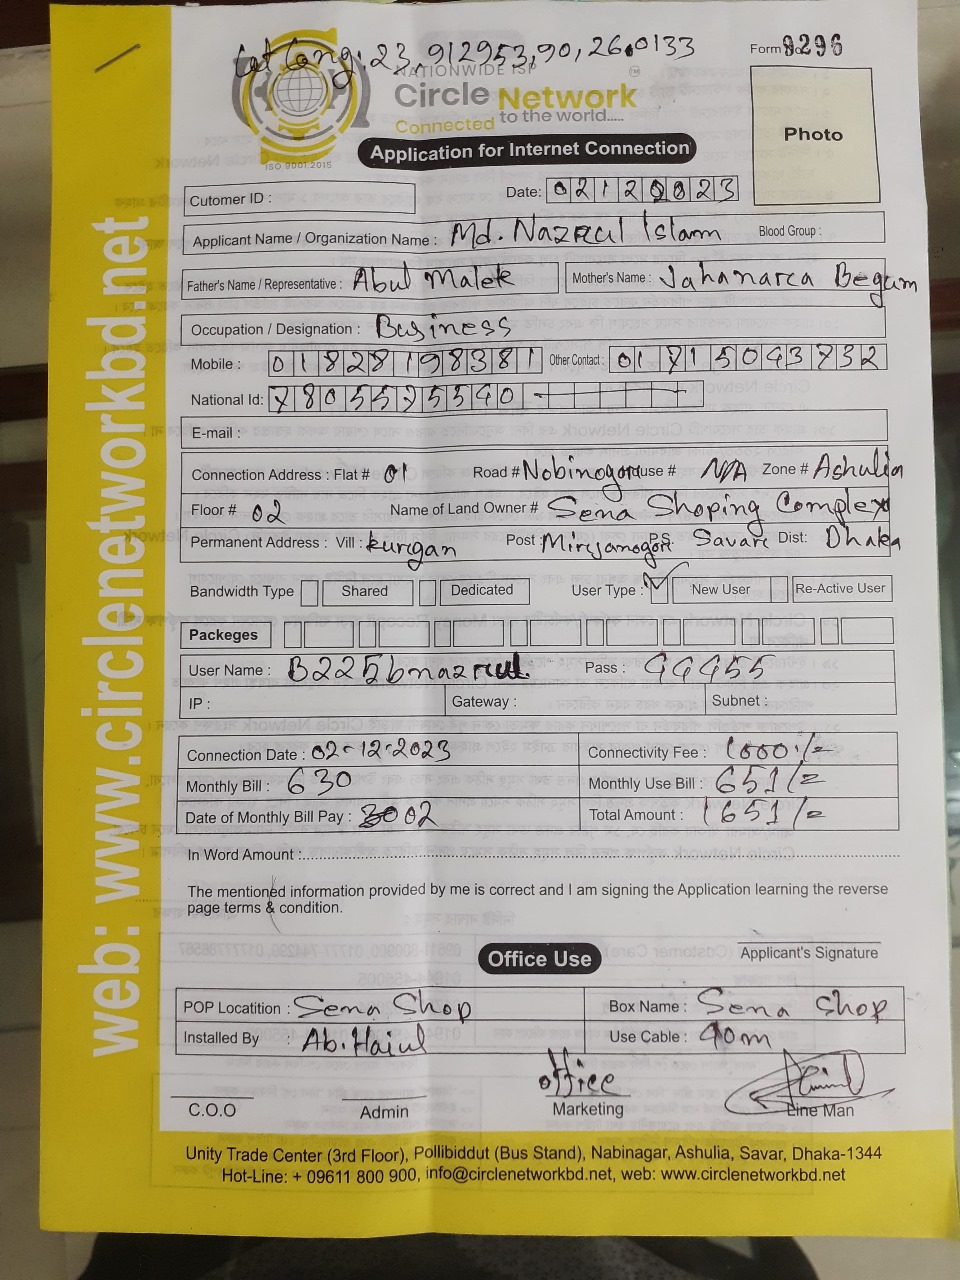 Lat Long: 23.912953,90,26.0133
Form No. 9296
NATIONWIDE ISP
Circle Network
Connected to the world.....
ISO 9001:2015
Application for Internet Connection
Photo
Cutomer ID :
Date: 02122023
Applicant Name / Organization Name : Md. Nazrul Islam Blood Group :
Father's Name / Representative : Abul Malek Mother's Name : Jahanara Begum
Occupation / Designation : Business
Mobile : 01828198381 Other Contact : 01715043732
National Id: 7805525540
E-mail :
Connection Address : Flat # 01 Road # Nobinogor House # N/A Zone # Ashulia
Floor # 02 Name of Land Owner # Sena Shoping Complex
Permanent Address : Vill : kurgan Post : Mirjanogor P.S. Savar Dist: Dhaka
Bandwidth Type Shared Dedicated User Type : New User Re-Active User
Packeges
User Name : B225bnazrul Pass : 44455
IP : Gateway : Subnet :
Connection Date : 02-12-2023 Connectivity Fee : 1000/=
Monthly Bill : 630 Monthly Use Bill : 651/=
Date of Monthly Bill Pay : 02 Total Amount : 1651/=
In Word Amount :
The mentioned information provided by me is correct and I am signing the Application learning the reverse
page terms & condition.
Applicant's Signature
Office Use
POP Locatition : Sena Shop Box Name : Sena Shop
Installed By : Ab. Haiul Use Cable : 40m
office
C.O.O Admin Marketing Line Man
Unity Trade Center (3rd Floor), Pollibiddut (Bus Stand), Nabinagar, Ashulia, Savar, Dhaka-1344
Hot-Line: + 09611 800 900, info@circlenetworkbd.net, web: www.circlenetworkbd.net
web: www.circlenetworkbd.net